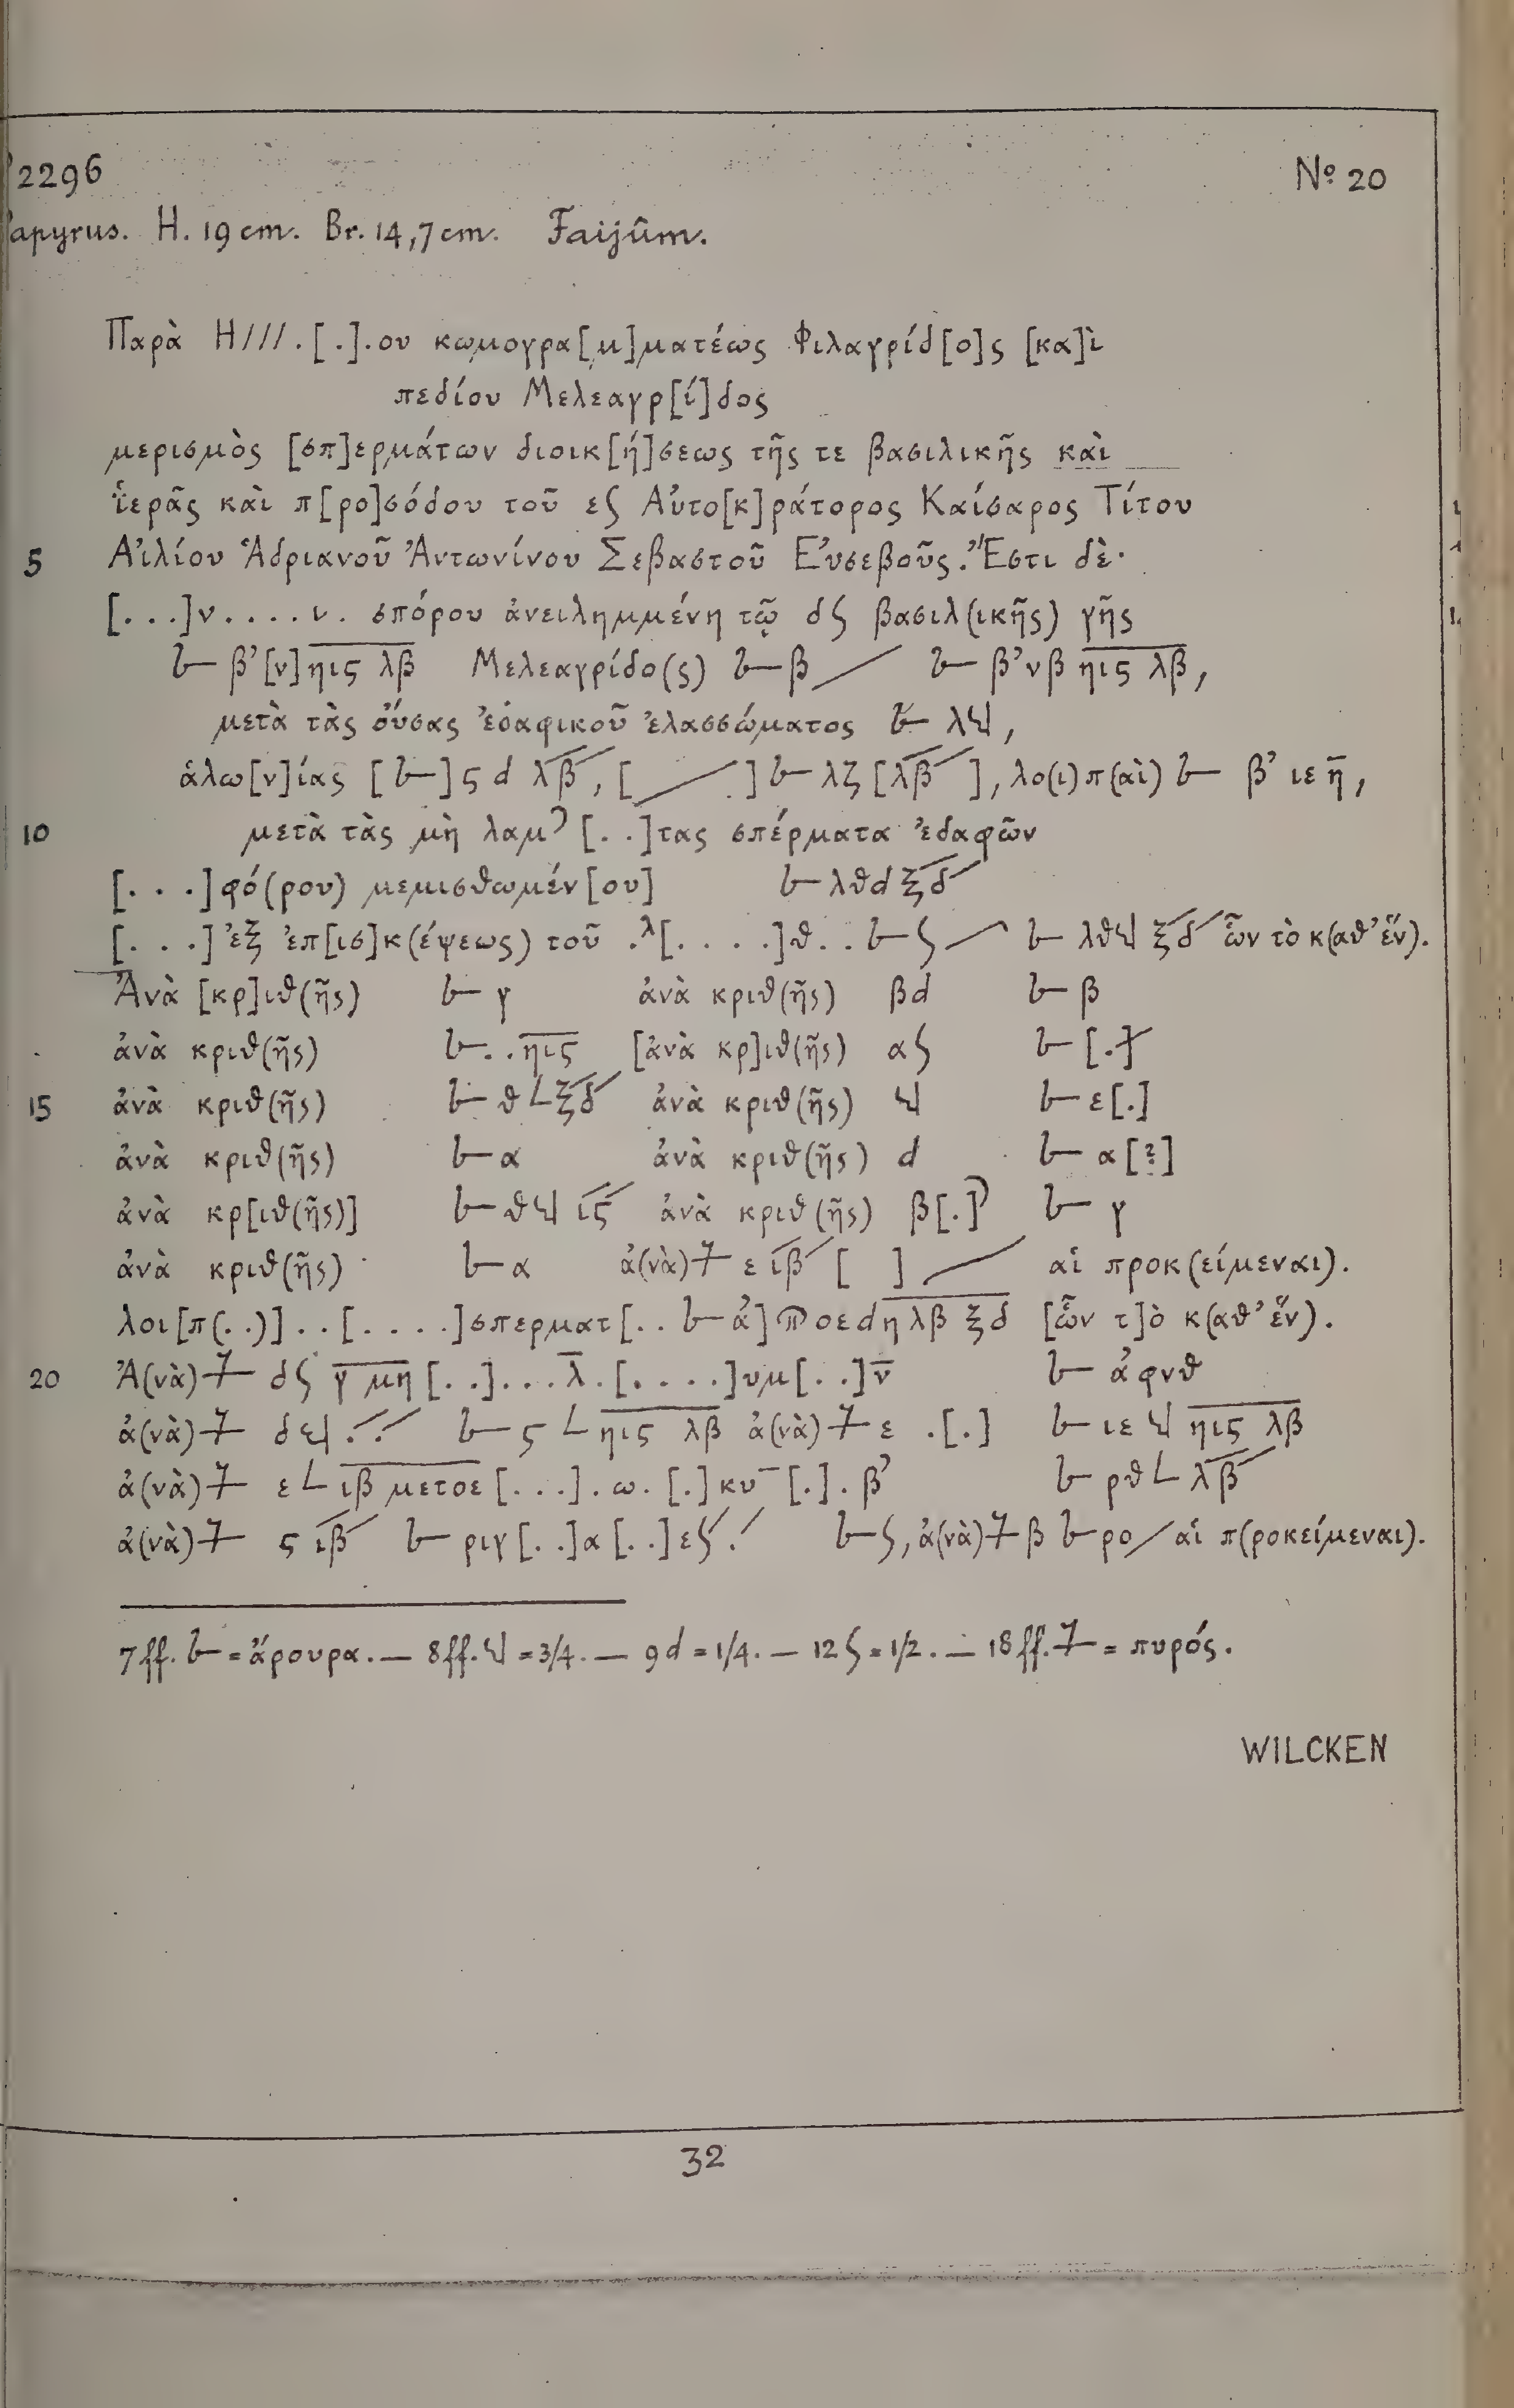 2296 Nº 20
Papyrus. H. 19 cm. Br. 14,7 cm. Faijûm.
Παρὰ Η///.[.].ου κωμογρα[μ]ματέως Φιλαγρίδ[ο]ς [κα]ὶ
πεδίου Μελεαγρ[ί]δος
μερισμὸς [σπ]ερμάτων διοικ[ή]σεως τῆς τε βασιλικῆς καὶ
ἱερᾶς καὶ π[ρο]σόδου τοῦ εʃ Αὐτο[κ]ράτορος Καίσαρος Τίτου
5 Αἰλίου Ἁδριανοῦ Ἀντωνίνου Σεβαστοῦ Εὐσεβοῦς. Ἔστι δὲ·
[...]ν....ι. σπόρου ἀνειλημμένη τῷ δʃ βασιλ(ικῆς) γῆς
𐅵 β’[ν] ηις λβ Μελεαγρίδο(ς) 𐅵 β / 𐅵 β’νβ ηις λβ,
μετὰ τὰς οὔσας ἐδαφικοῦ ἐλασσώματος 𐅵 λ𐅸,
ἁλω[ν]ίας [𐅵] ς d λβ, [/] 𐅵 λζ [λβ], λο(ι)π(αὶ) 𐅵 β’ ιε η,
10 μετὰ τὰς μὴ λαμ? [..]τας σπέρματα ἐδαφῶν
[...]φό(ρου) μεμισθωμέν[ου] 𐅵 λθd ξδ
[...] ἐξ ἐπ[ισ]κ(έψεως) τοῦ .λ[....]θ.. 𐅵 ʃ / 𐅵 λθ𐅸 ξδ ὧν τὸ κ(αθ’ἕν).
Ἀνὰ [κρ]ιθ(ῆς) 𐅵 γ ἀνὰ κριθ(ῆς) βd 𐅵 β
ἀνὰ κριθ(ῆς) 𐅵..ηις [ἀνὰ κρ]ιθ(ῆς) αʃ 𐅵 [.]
15 ἀνὰ κριθ(ῆς) 𐅵 θ∠ξδ ἀνὰ κριθ(ῆς) 𐅸 𐅵 ε[.]
ἀνὰ κριθ(ῆς) 𐅵 α ἀνὰ κριθ(ῆς) d 𐅵 α[?]
ἀνὰ κρ[ιθ(ῆς)] 𐅵 θ𐅸 ις ἀνὰ κριθ(ῆς) β[.] 𐅵 γ
ἀνὰ κριθ(ῆς) 𐅵 α ἀ(νὰ) ⨍ ε ιβ [ ] / αἱ προκ(είμεναι).
λοι[π(..)]..[....]σπερματ[.. 𐅵 ἀ]ϡοεdη λβ ξδ [ὧν τ]ὸ κ(αθ’ἕν).
20 Ἀ(νὰ) ⨍ δʃ γ μη [..]...λ.[....]υμ[..]ν 𐅵 ἀφνθ
ἀ(νὰ) ⨍ δ𐅸 .. 𐅵 ς ∠ ηις λβ ἀ(νὰ) ⨍ ε .[.] 𐅵 ιε 𐅸 ηις λβ
ἀ(νὰ) ⨍ ε∠ ιβ μετοε[...].ω.[.]κυ[.].β’ 𐅵 ρθ∠ λβ
ἀ(νὰ) ⨍ ς ιβ 𐅵 ριγ[..]α[..]εʃ. 𐅵 ʃ, ἀ(νὰ) ⨍ β 𐅵 ρο / αἱ π(ροκείμεναι).
7 ff. 𐅵 = ἄρουρα. — 8 ff. 𐅸 = 3/4. — 9 d = 1/4. — 12 ʃ = 1/2. — 18 ff. ⨍ = πυρός.
WILCKEN
32